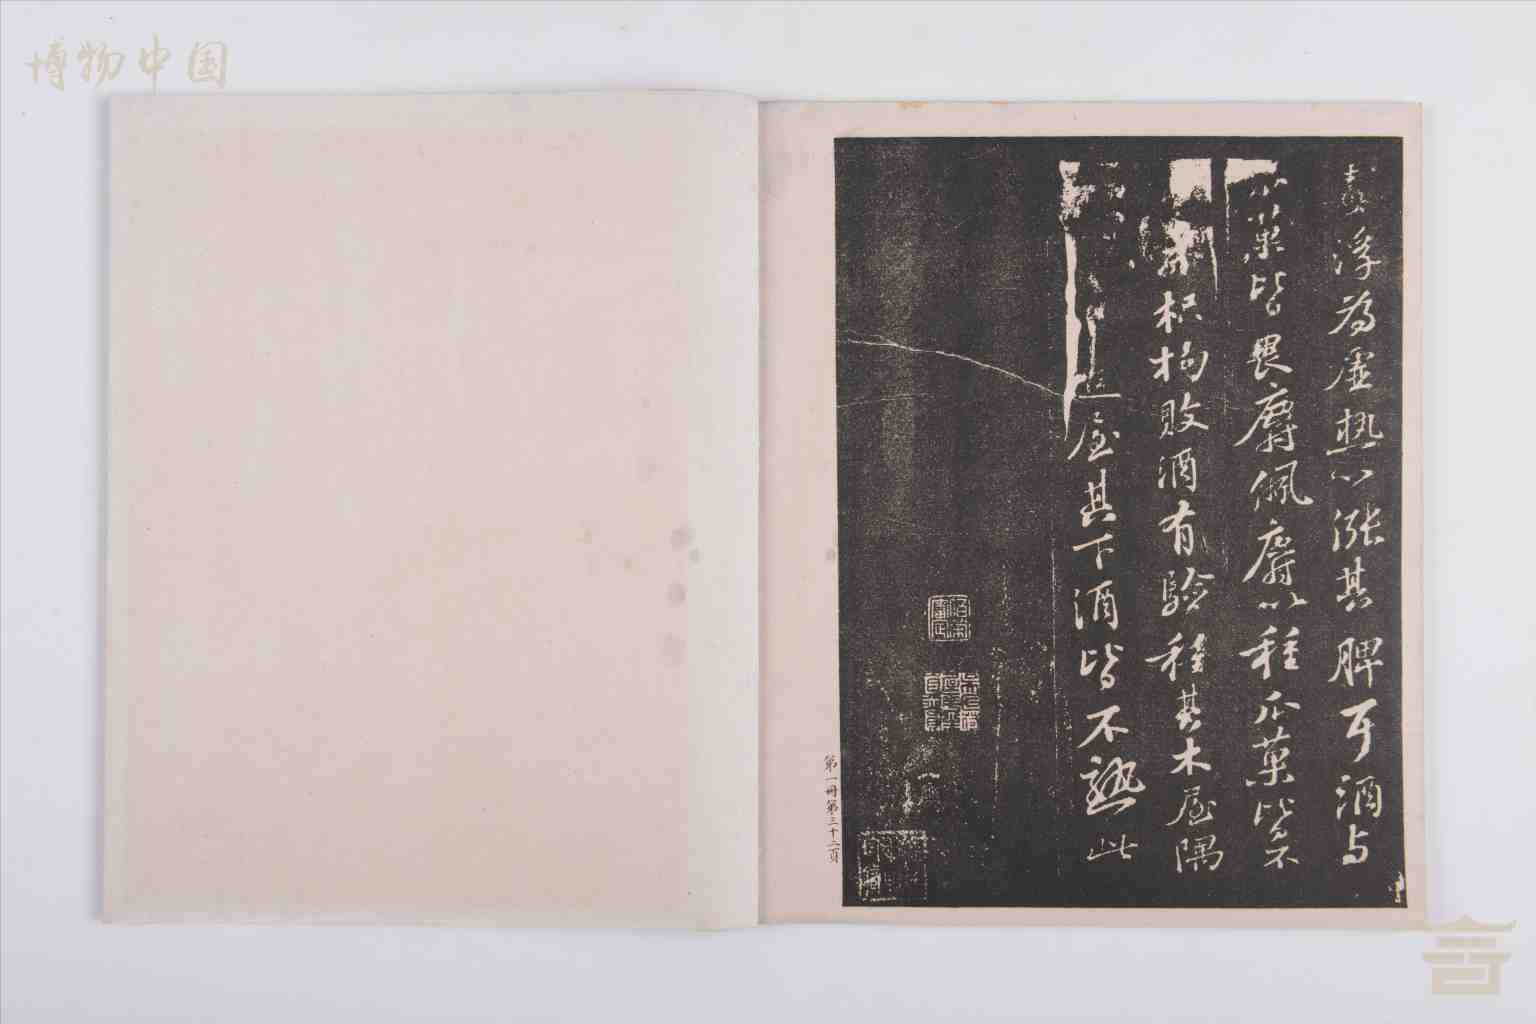 博物中国
浮為虛熱以漲其脾耳酒与
菓皆畏麝佩麝以種瓜菓皆不
枳枸敗酒有驗種其木屋隅
屋其下酒皆不熟此
第一冊第三十二頁